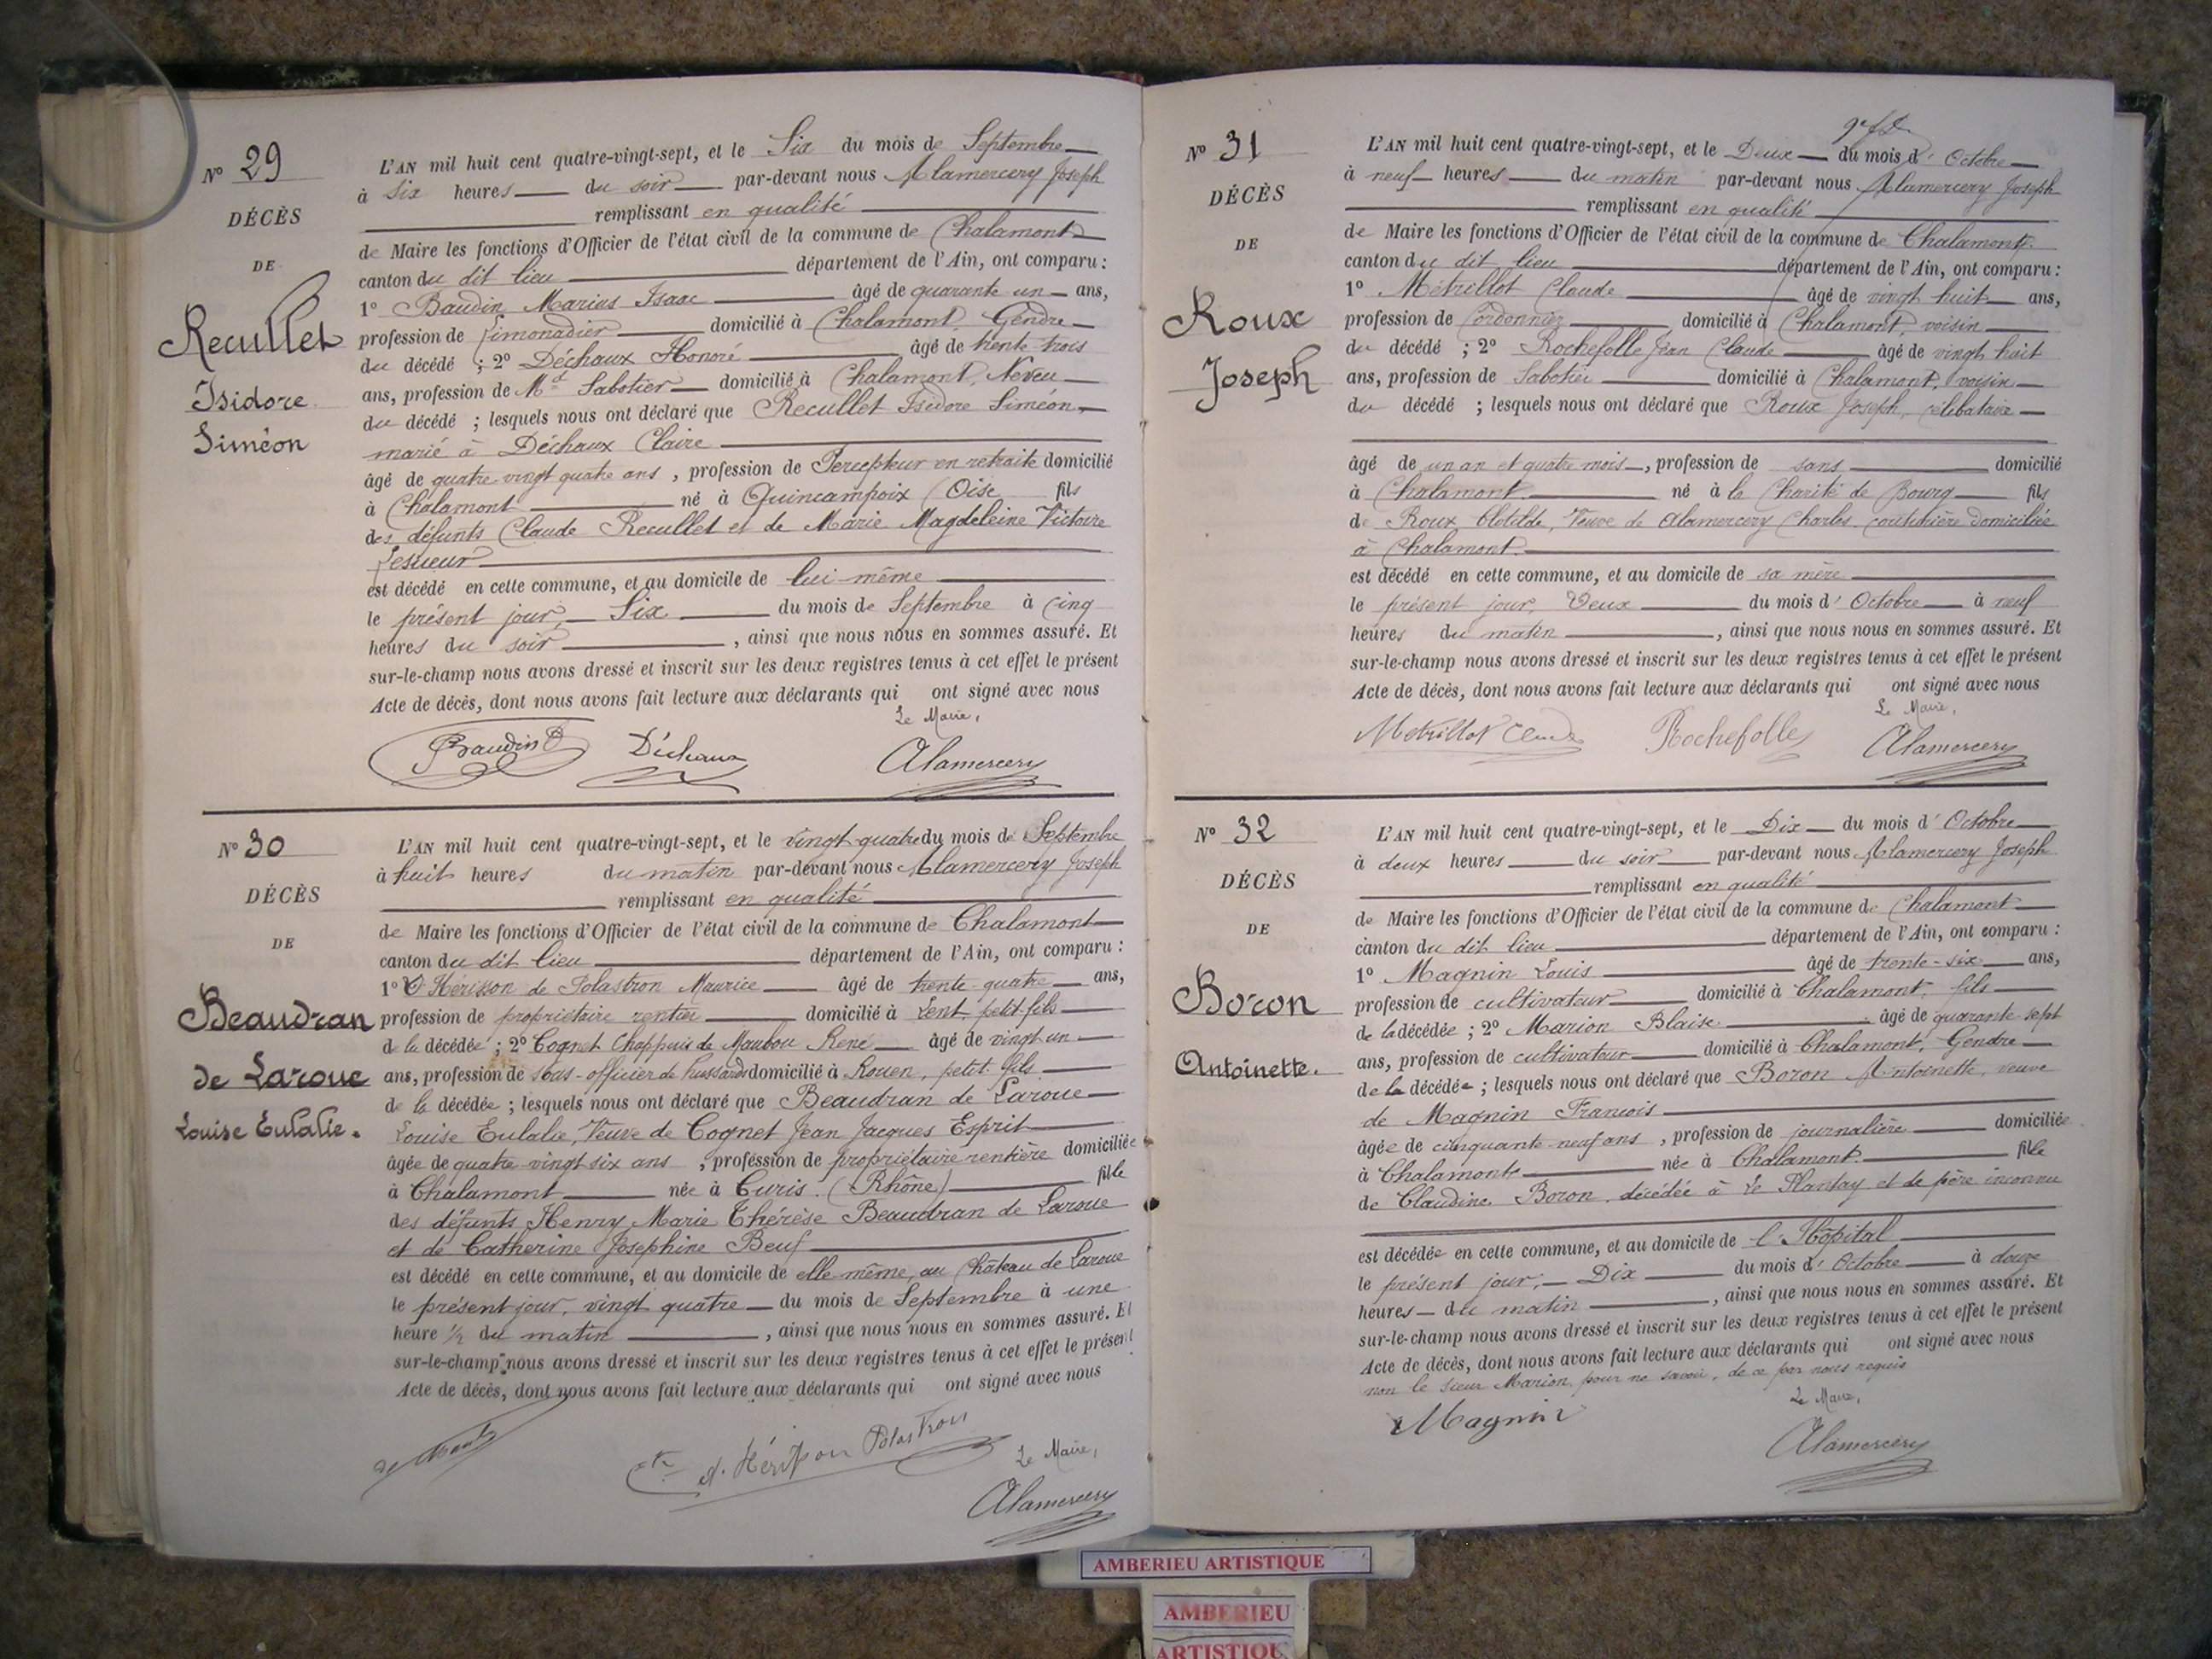 N° 29
DÉCÈS
DE
Recullet
Isidore
Siméon
L'AN mil huit cent quatre-vingt-sept, et le Six du mois de Septembre
à Six heures du soir par-devant nous Alamercery Joseph
remplissant en qualité
de Maire les fonctions d'Officier de l'état civil de la commune de Chalamont
canton du dit lieu département de l'Ain, ont comparu :
1° Baudin Marius Isaac âgé de quarante un ans,
profession de Limonadier domicilié à Chalamont, Gendre
du décédé ; 2° Déchaux Honoré âgé de trente trois
ans, profession de Md Sabotier domicilié à Chalamont, Neveu
du décédé ; lesquels nous ont déclaré que Recullet Isidore Siméon,
marié à Déchaux Claire
âgé de quatre-vingt quatre ans, profession de Percepteur en retraite domicilié
à Chalamont né à Quincampoix (Oise fils
des défunts Claude Recullet et de Marie Magdeleine Victoire
Lesueur
est décédé en cette commune, et au domicile de lui-même
le présent jour, Six du mois de Septembre à cinq
heures du soir, ainsi que nous nous en sommes assuré. Et
sur-le-champ nous avons dressé et inscrit sur les deux registres tenus à cet effet le présent
Acte de décès, dont nous avons fait lecture aux déclarants qui ont signé avec nous
Le Maire,
Baudin Déchaux Alamercery
N° 30
DÉCÈS
DE
Beaudran
de Laroue
Louise Eulalie.
L'AN mil huit cent quatre-vingt-sept, et le vingt-quatre du mois de Septembre
à huit heures du matin par-devant nous Alamercery Joseph
remplissant en qualité
de Maire les fonctions d'Officier de l'état civil de la commune de Chalamont
canton du dit lieu département de l'Ain, ont comparu :
1° Hérisson de Polastron Maurice âgé de trente-quatre ans,
profession de propriétaire rentier domicilié à Lent, petit-fils
de la décédée ; 2° Cognet Chappuis de Maubou René âgé de vingt un
ans, profession de sous-officier de hussards domicilié à Rouen, petit fils
de la décédée ; lesquels nous ont déclaré que Beaudran de Laroue
Louise Eulalie, Veuve de Cognet Jean Jacques Esprit
âgée de quatre-vingt six ans, profession de propriétaire rentière domiciliée
à Chalamont née à Curis (Rhône) fille
des défunts Henry Marie Thérèse Beaudran de Laroue
et de Catherine Josephine Beuf
est décédé en cette commune, et au domicile de elle même, au Château de Laroue
le présent jour, vingt quatre du mois de Septembre à une
heure ½ du matin, ainsi que nous nous en sommes assuré. Et
sur-le-champ nous avons dressé et inscrit sur les deux registres tenus à cet effet le présent
Acte de décès, dont nous avons fait lecture aux déclarants qui ont signé avec nous
Hérisson Polastron Le Maire,
Alamercery
N° 31
DÉCÈS
DE
Roux
Joseph
L'AN mil huit cent quatre-vingt-sept, et le Deux du mois d'Octobre
à neuf heures du matin par-devant nous Alamercery Joseph
remplissant en qualité
de Maire les fonctions d'Officier de l'état civil de la commune de Chalamont
canton du dit lieu département de l'Ain, ont comparu :
1° Métrillot Claude âgé de vingt huit ans,
profession de Cordonnier domicilié à Chalamont, voisin
du décédé ; 2° Rochefolle Jean Claude âgé de vingt huit
ans, profession de Sabotier domicilié à Chalamont, voisin
du décédé ; lesquels nous ont déclaré que Roux Joseph, célibataire
âgé de un an et quatre mois, profession de sans domicilié
à Chalamont né à la Charité de Bourg fils
de Roux Clotilde, Veuve de Alamercery Charles, couturière domiciliée
à Chalamont.
est décédé en cette commune, et au domicile de sa mère
le présent jour, Deux du mois d'Octobre à neuf
heures du matin, ainsi que nous nous en sommes assuré. Et
sur-le-champ nous avons dressé et inscrit sur les deux registres tenus à cet effet le présent
Acte de décès, dont nous avons fait lecture aux déclarants qui ont signé avec nous
Le Maire,
Metrillot Claude Rochefolle Alamercery
N° 32
DÉCÈS
DE
Boron
Antoinette.
L'AN mil huit cent quatre-vingt-sept, et le Dix du mois d'Octobre
à deux heures du soir par-devant nous Alamercery Joseph
remplissant en qualité
de Maire les fonctions d'Officier de l'état civil de la commune de Chalamont
canton du dit lieu département de l'Ain, ont comparu :
1° Magnin Louis âgé de trente-six ans,
profession de cultivateur domicilié à Chalamont, fils
de la décédée ; 2° Marion Blaise âgé de quarante-sept
ans, profession de cultivateur domicilié à Chalamont, Gendre
de la décédée ; lesquels nous ont déclaré que Boron Antoinette, veuve
de Magnin François
âgée de cinquante-neuf ans, profession de journalière domiciliée
à Chalamont née à Chalamont. fille
de Claudine Boron, décédée à Le Plantay et de père inconnu
est décédée en cette commune, et au domicile de l'Hôpital
le présent jour, Dix du mois d'Octobre à douze
heures du matin, ainsi que nous nous en sommes assuré. Et
sur-le-champ nous avons dressé et inscrit sur les deux registres tenus à cet effet le présent
Acte de décès, dont nous avons fait lecture aux déclarants qui ont signé avec nous
non le sieur Marion pour ne savoir, de ce par nous requis
Le Maire,
Magnin
Alamercery
AMBERIEU ARTISTIQUE
AMBERIEU
ARTISTIQUE